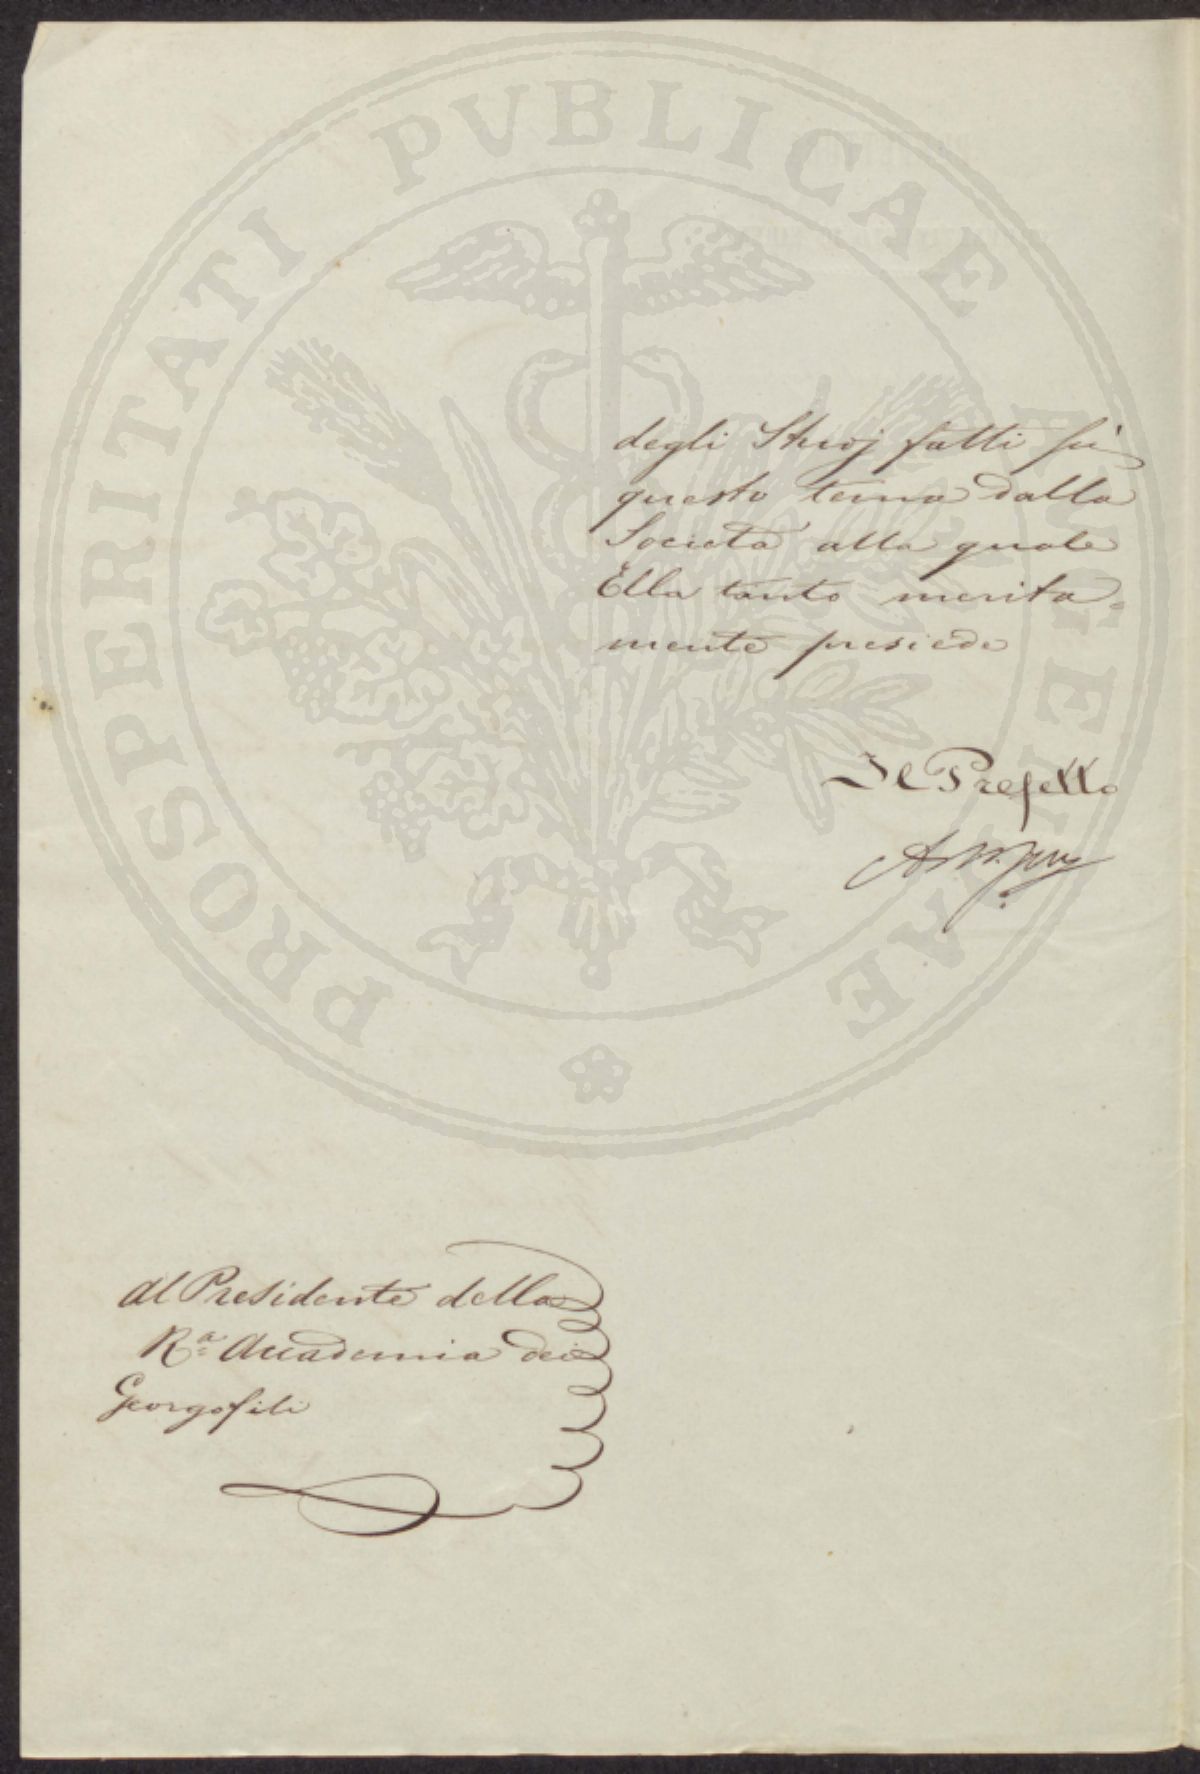 PROSPERITATI PUBLICAE AUGENDAE
degli Studj fatti sù
questo tema dalla
Società alla quale
Ella tanto merita=
mente presiede
Il Prefetto
Al Presidente della
R.ª Accademia dei
Georgofili